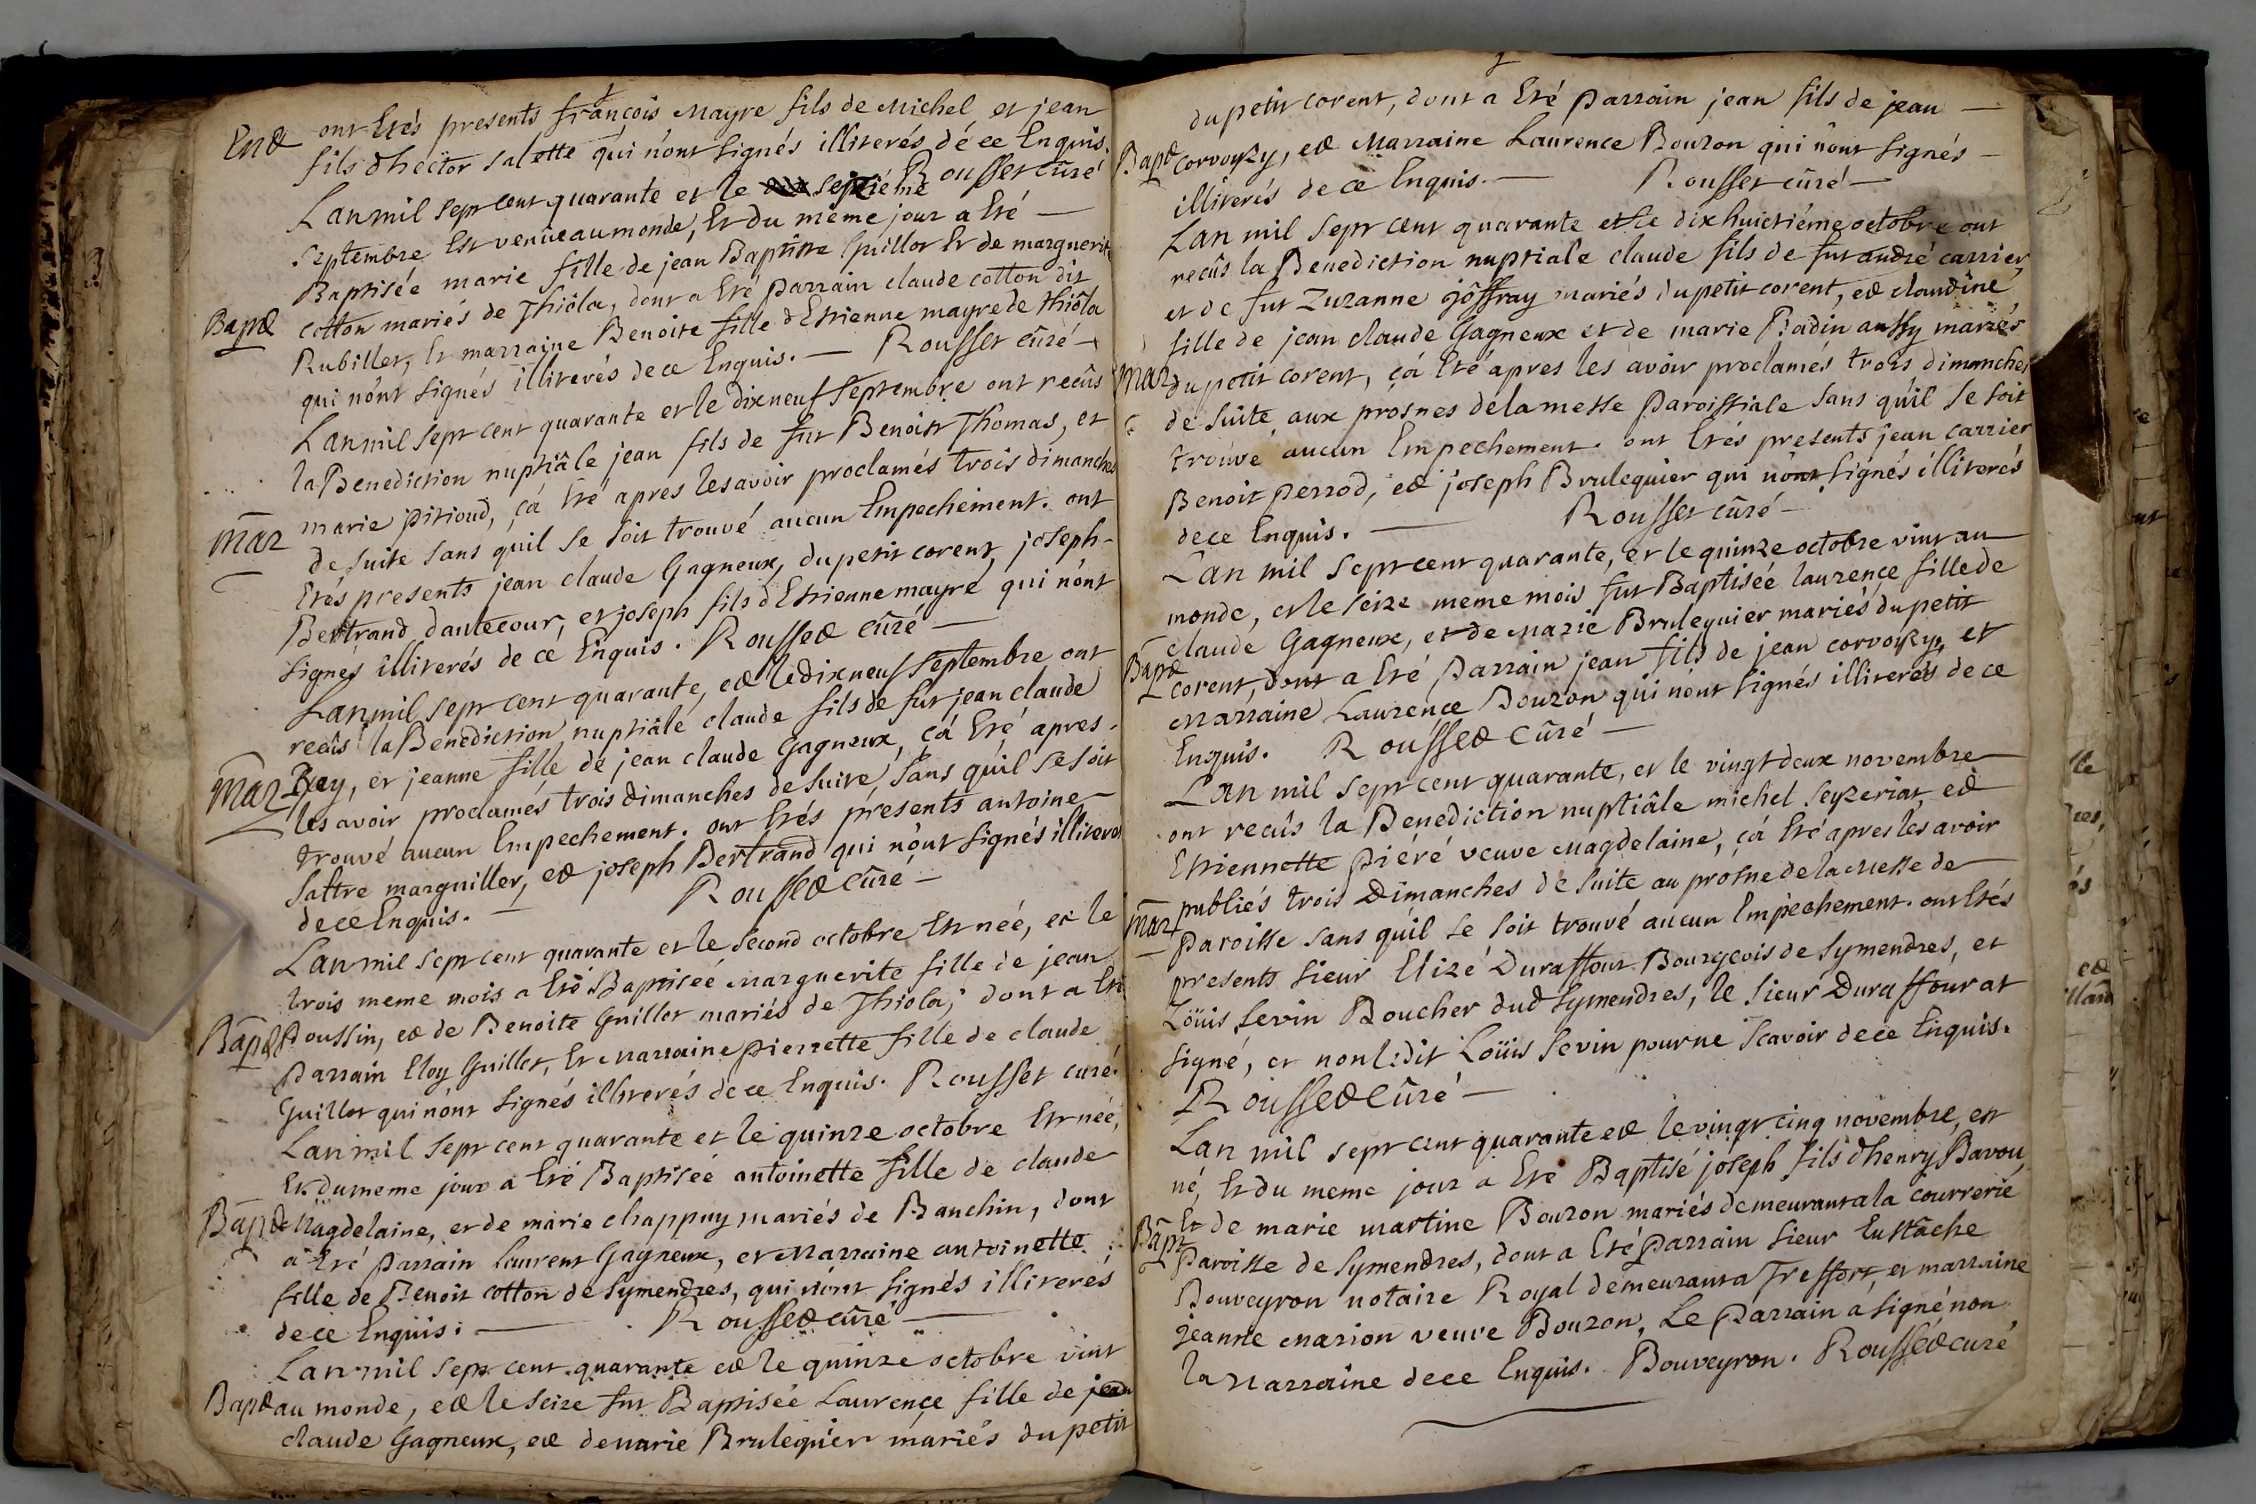 Ent
ont Etés presents françois Mayre fils de Michel, et jean
fils dhector salette qui nônt signés illiterés dé ce Enquis.
Rousset curé
Lan mil sept cent quarante et le septiéme
septembre Est venüe au monde, Et du même jour a Eté —
Baptisée marie fille de jean Baptiste Guillot Et de marguerite
Bapt
cotton mariés de Thiola, dont a Eté parrain claude cotton dit
Rubillet, Et marraine Benoite fille dEstienne mayre de thiola
qui nônt signés illiterés de ce Enquis. — Rousset curé —
Lan mil sept cent quarante et le dixneuf septembre ont recûs
la Benediction nuptiâle jean fils de fut Benoist Thomas, et
Mar
marie pitioud, çá Eté apres les avoir proclamés trois dimanches
de suite sans quil se soit trouvé aucun Empechement. ont
Etés presents jean claude Gagneux, du petit corent, joseph
Bertrand dantecour, et joseph fils dEstienne mayre qui nônt
signés illiterés de ce Enquis. Rousset curé —
Lan mil sept cent quarante, et le dixneuf septembre ont
recûs la Benediction nuptiâle claude fils de fut jean claude
Mar
Rey, et jeanne fille de jean claude Gagneux, çá Eté apres
les avoir proclamés trois dimanches de suite sans qu'il se soit
trouvé aucun Empechement. ont Etés presents antoine
sattre marguiller, et joseph Bertrand qui nônt signés illiterés
de ce Enquis. — Rousset curé —
Lan mil sept cent quarante et le second octobre Est née, et le
trois meme mois a Eté Baptisée Marguerite fille de jean
Bapt
Poussin, et de Benoite Guillot mariés de Thiola; dont a Eté
parrain Eloy Guillot, Et Marraine pierrette fille de claude
Guillot qui nônt signés illiterés de ce Enquis. Rousset curé.
Lan mil sept cent quarante et le quinze octobre Est née,
Et du meme jour a Eté Baptisée antoinette fille de claude
Bapt
Magdelaine, et de marie chappuy mariés de Banchin, dont
a Eté parrain laurent Gagneux, et Marraine antoinette
fille de Benoit cotton de symendres, qui nônt signés illiterés
de ce Enquis: — Rousset curé —
Lan mil sept cent quarante et le quinze octobre vint
Bapt
au monde, et le seize fut Baptisée Laurence fille de jean
claude Gagneux, et de marie Brulequier mariés du petit
du petit corent, dont a Eté parrain jean fils de jean —
Bapt
corvoysy, et Marraine Laurence Bouzon qui nônt signés —
illiterés de ce Enquis. — Rousset curé —
Lan mil sept cent quarante et le dix huictiéme octobre ont
recûs la Benediction nuptiale claude fils de fut andré carrier,
et de fut Zuzanne jôffray mariés du petit corent, et claudine
fille de jean claude Gagneux et de marie Badin aussy mariés
Mar
du petit corent, çá Eté apres les avoir proclamés trois dimanches
de suite aux prosnes de la messe paroissiale sans qu'il se soit
trouvé aucun Empechement. ont Etés presents jean carrier
Benoit perrod, et joseph Brulequier qui nônt signés illiterés
de ce Enquis. — Rousset curé —
Lan mil sept cent quarante, et le quinze octobre vint au
monde, et le seize meme mois fut Baptisée laurence fille de
claude Gagneux, et de Marie Brulequier mariés du petit
Bapt
corent, dont a Eté parrain jean fils de jean corvoysy, et
Marraine Laurence Bouzon qui nônt signés illiterés de ce
Enquis. Rousset curé —
Lan mil sept cent quarante, et le vingt deux novembre
ont recûs la Benediction nuptiâle michel seyzeriat, et
Estiennette piéré veuve Magdelaine, çá Eté apres les avoir
publiés trois Dimanches de suite au prosne de la Messe de
Mar
paroisse sans qu'il se soit trouvé aucun Empèchement. ont Etés
presents sieur Elizé Duraffour Bourgeois de symendres, et
Loüis sevin Boucher dud symendres, le sieur Duraffour at
signé, et non ledit Loüis sevin pour ne scavoir de ce Enquis.
Rousset curé —
Lan mil sept cent quarante et le vingt cinq novembre, est
né, Et du meme jour a Eté Baptisé joseph fils dhenry Bavou,
Et de marie martine Bouzon mariés demeurant a la courrerie
Bapt
paroisse de symendres, dont a Eté parrain sieur Eustâche
Bouveyron notaire Royal demeurant a Treffort, et marraine
jeanne Marion veuve Bouzon, Le parrain á signé non
la Marraine de ce Enquis. Bouveyron. Rousset curé